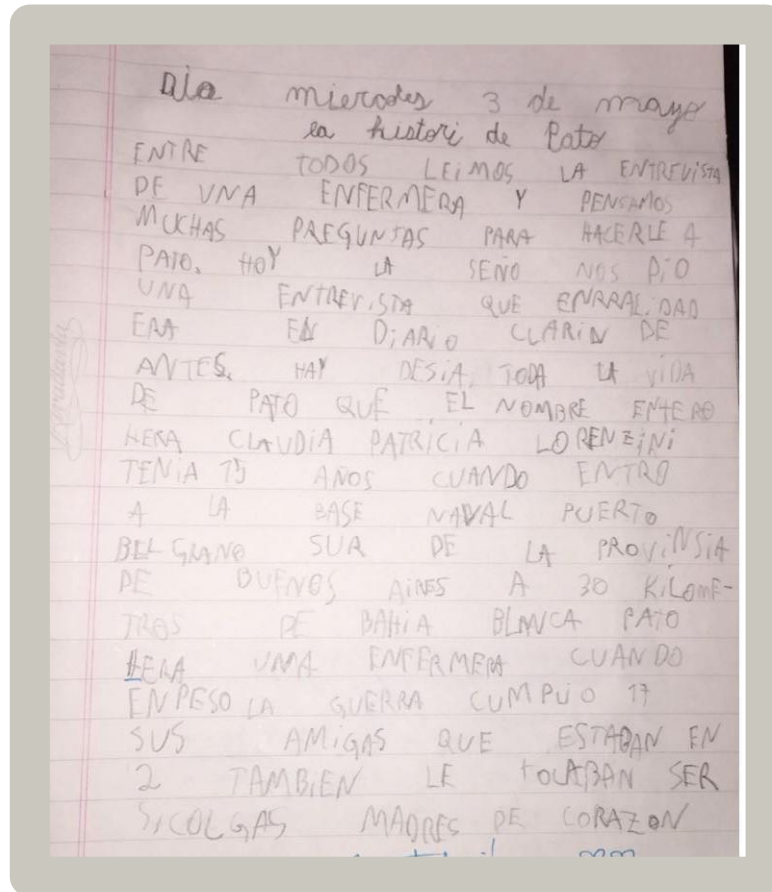 Dia miercoles 3 de mayo
la histori de Pato
ENTRE TODOS LEiMOS LA ENTREViSTA
DE UNA ENFERMERA Y PENSAMOS
MUCHAS PREGUNTAS PARA HACERLE A
PATO. HOY LA SEÑO NOS DiO
UNA ENTREViSTA QUE ENRRALiDAD
ERA EN DiARiO CLARiN DE
ANTES. HAY DESiA TODA LA ViDA
DE PATO QUE EL NOMBRE ENTERO
HERA CLAUDiA PATRiCiA LORENZiNi
TENiA 15 AÑOS CUANDO ENTRO
A LA BASE NAVAL PUERTO
BELGRANO SUR DE LA PROViNSiA
DE BUENOS AiRES A 30 KiLOME-
TROS DE BAHiA BLANCA PATO
HERA UNA ENFERMERA CUANDO
ENPESO LA GUERRA CUMPLiO 17
SUS AMiGAS QUE ESTABAN EN
2 TAMBiEN LE TOCABAN SER
SiCOLGAS MADRES DE CORAZON